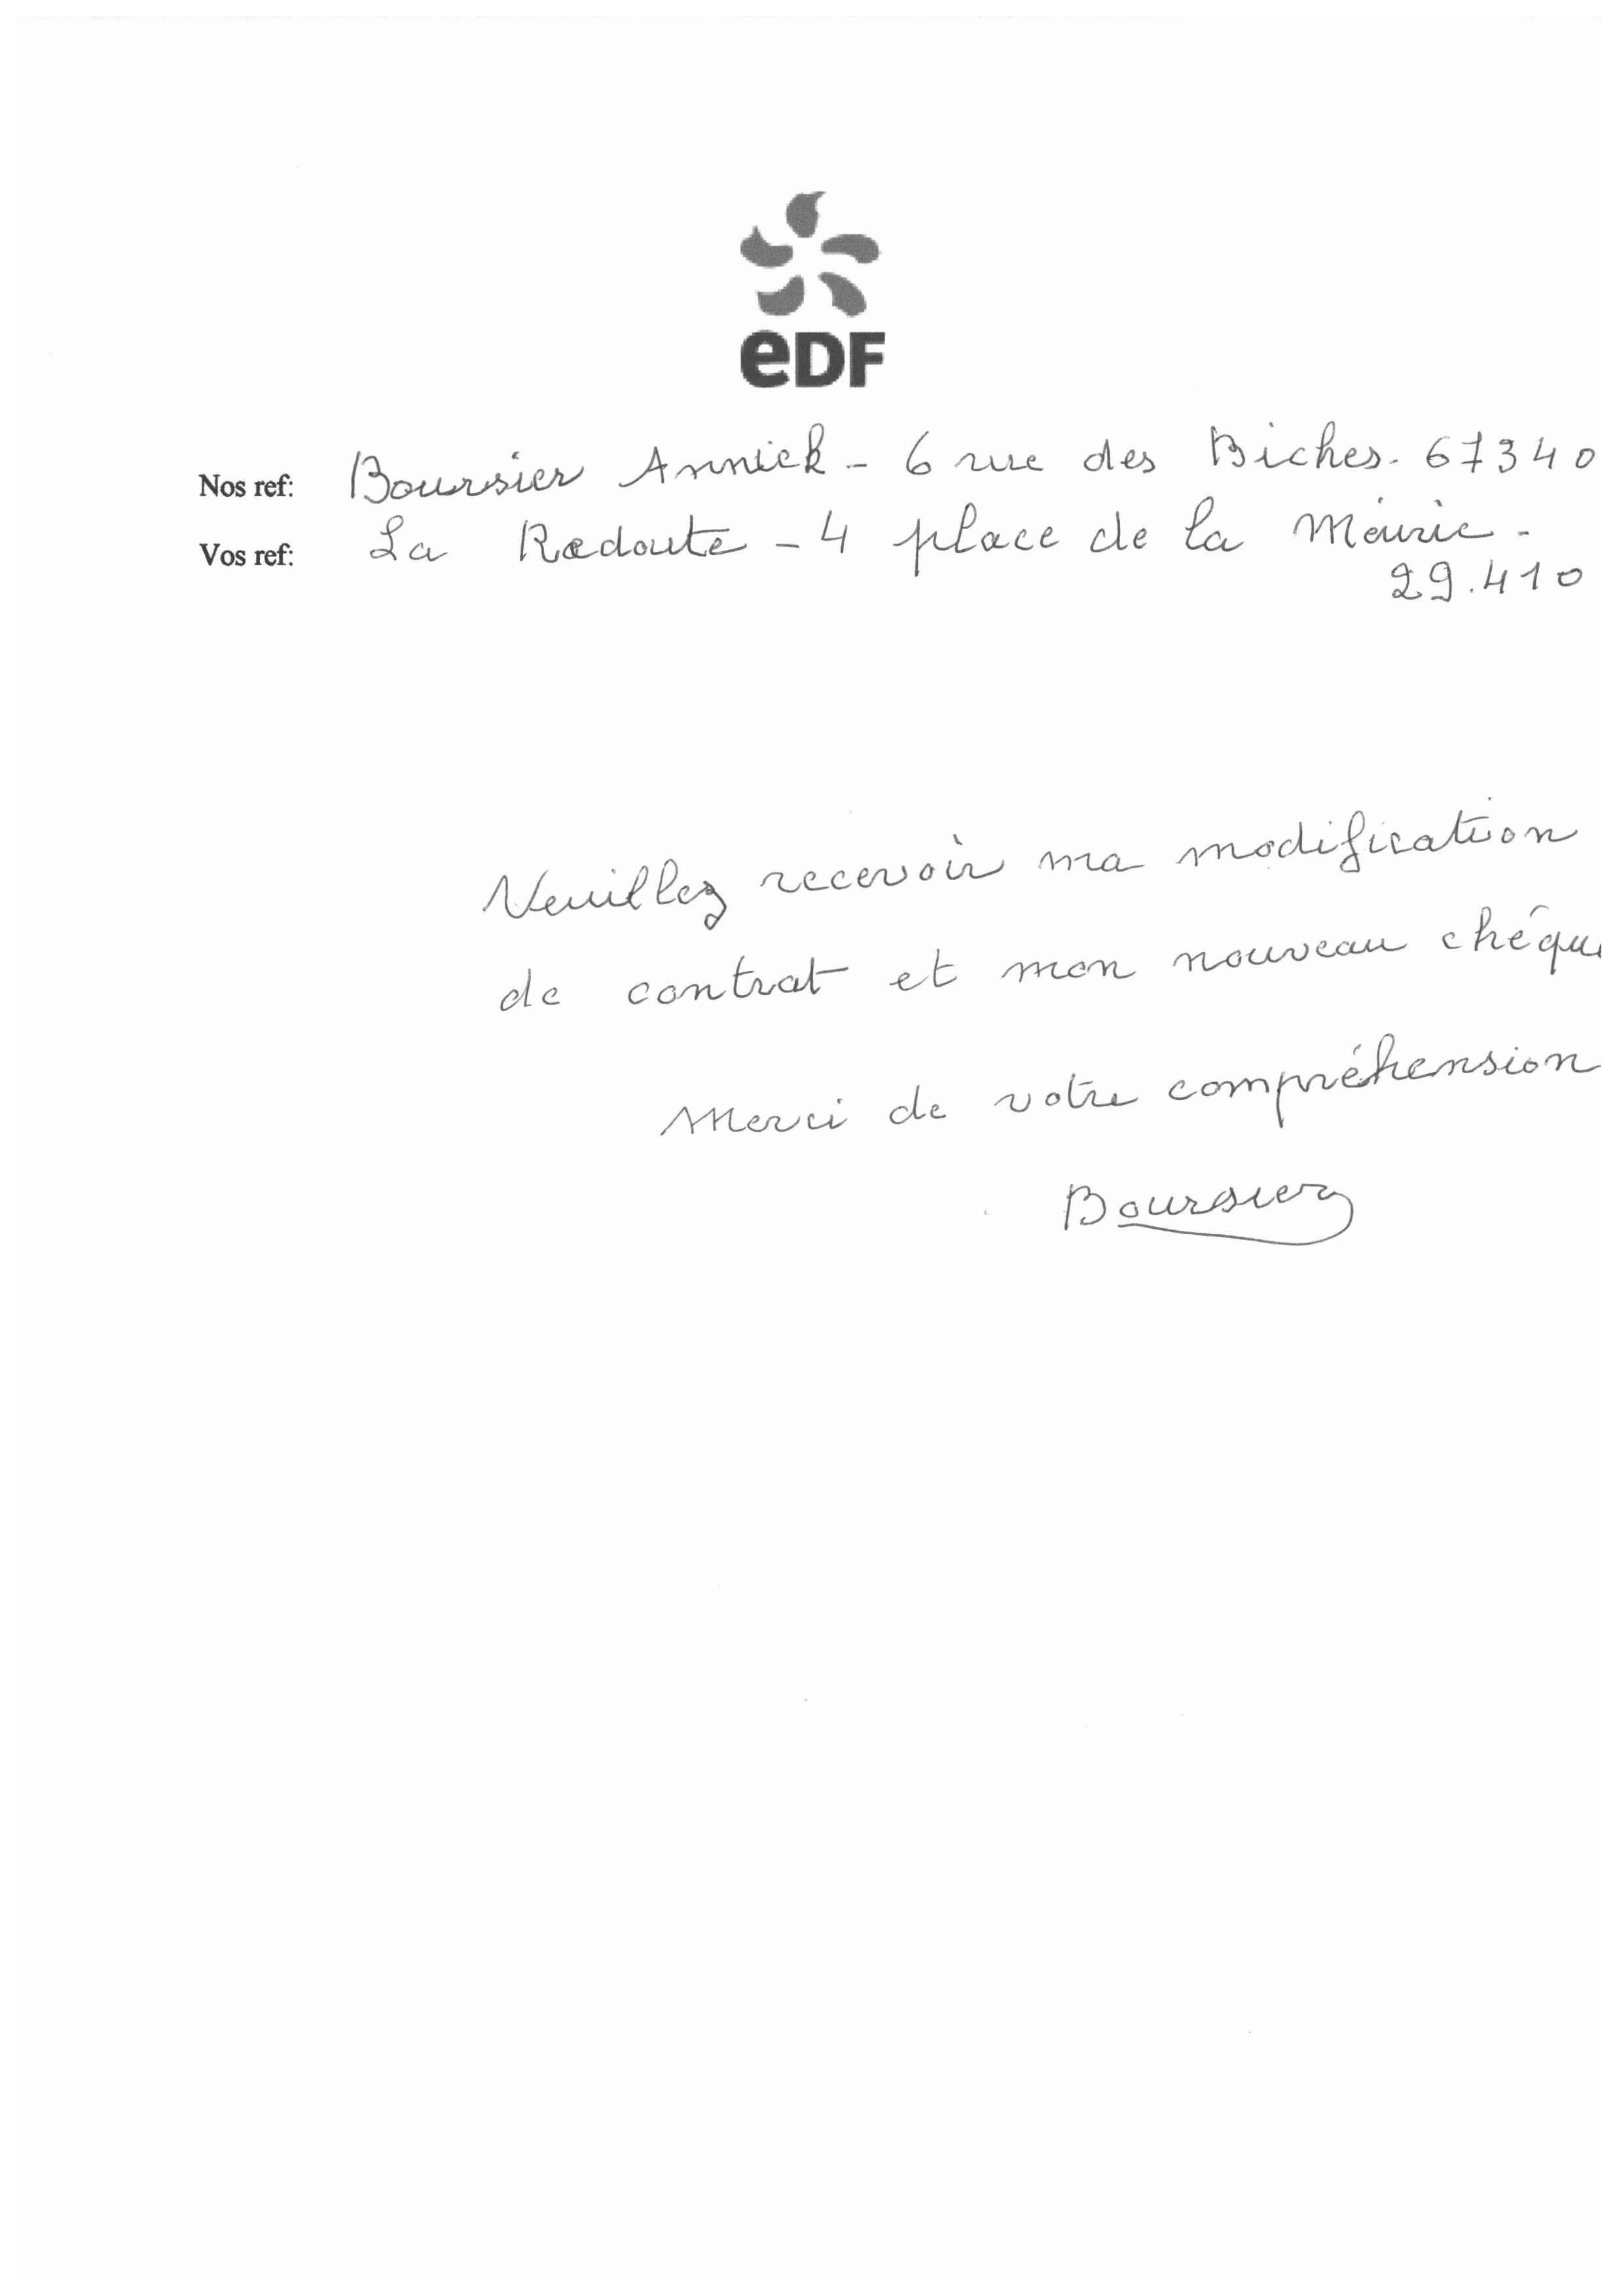 eDF
Nos ref: Boursier Annick - 6 rue des Biches. 67340
Vos ref: La Redoute - 4 place de la Mairie -
29.410
Veuillez recevoir ma modification
de contrat et mon nouveau chéqu
Merci de votre compréhension
Boursier